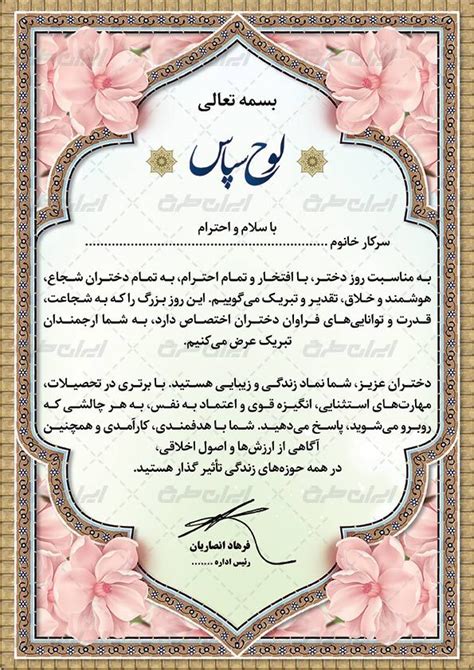 بسمه تعالی
لوح سپاس
با سلام و احترام
سرکار خانوم ............................................................
به مناسبت روز دختر، با افتخار و تمام احترام، به تمام دختران شجاع،
هوشمند و خلاق، تقدیر و تبریک می‌گوییم. این روز بزرگ را که به شجاعت،
قدرت و توانایی‌های فراوان دختران اختصاص دارد، به شما ارجمندان
تبریک عرض می‌کنیم.
دختران عزیز، شما نماد زندگی و زیبایی هستید. با برتری در تحصیلات،
مهارت‌های استثنایی، انگیزه قوی و اعتماد به نفس، به هر چالشی که
روبرو می‌شوید، پاسخ می‌دهید. شما با هدفمندی، کارآمدی و همچنین
آگاهی از ارزش‌ها و اصول اخلاقی،
در همه حوزه‌های زندگی تأثیر گذار هستید.
فرهاد انصاریان
رئیس اداره .......
ایران طرح